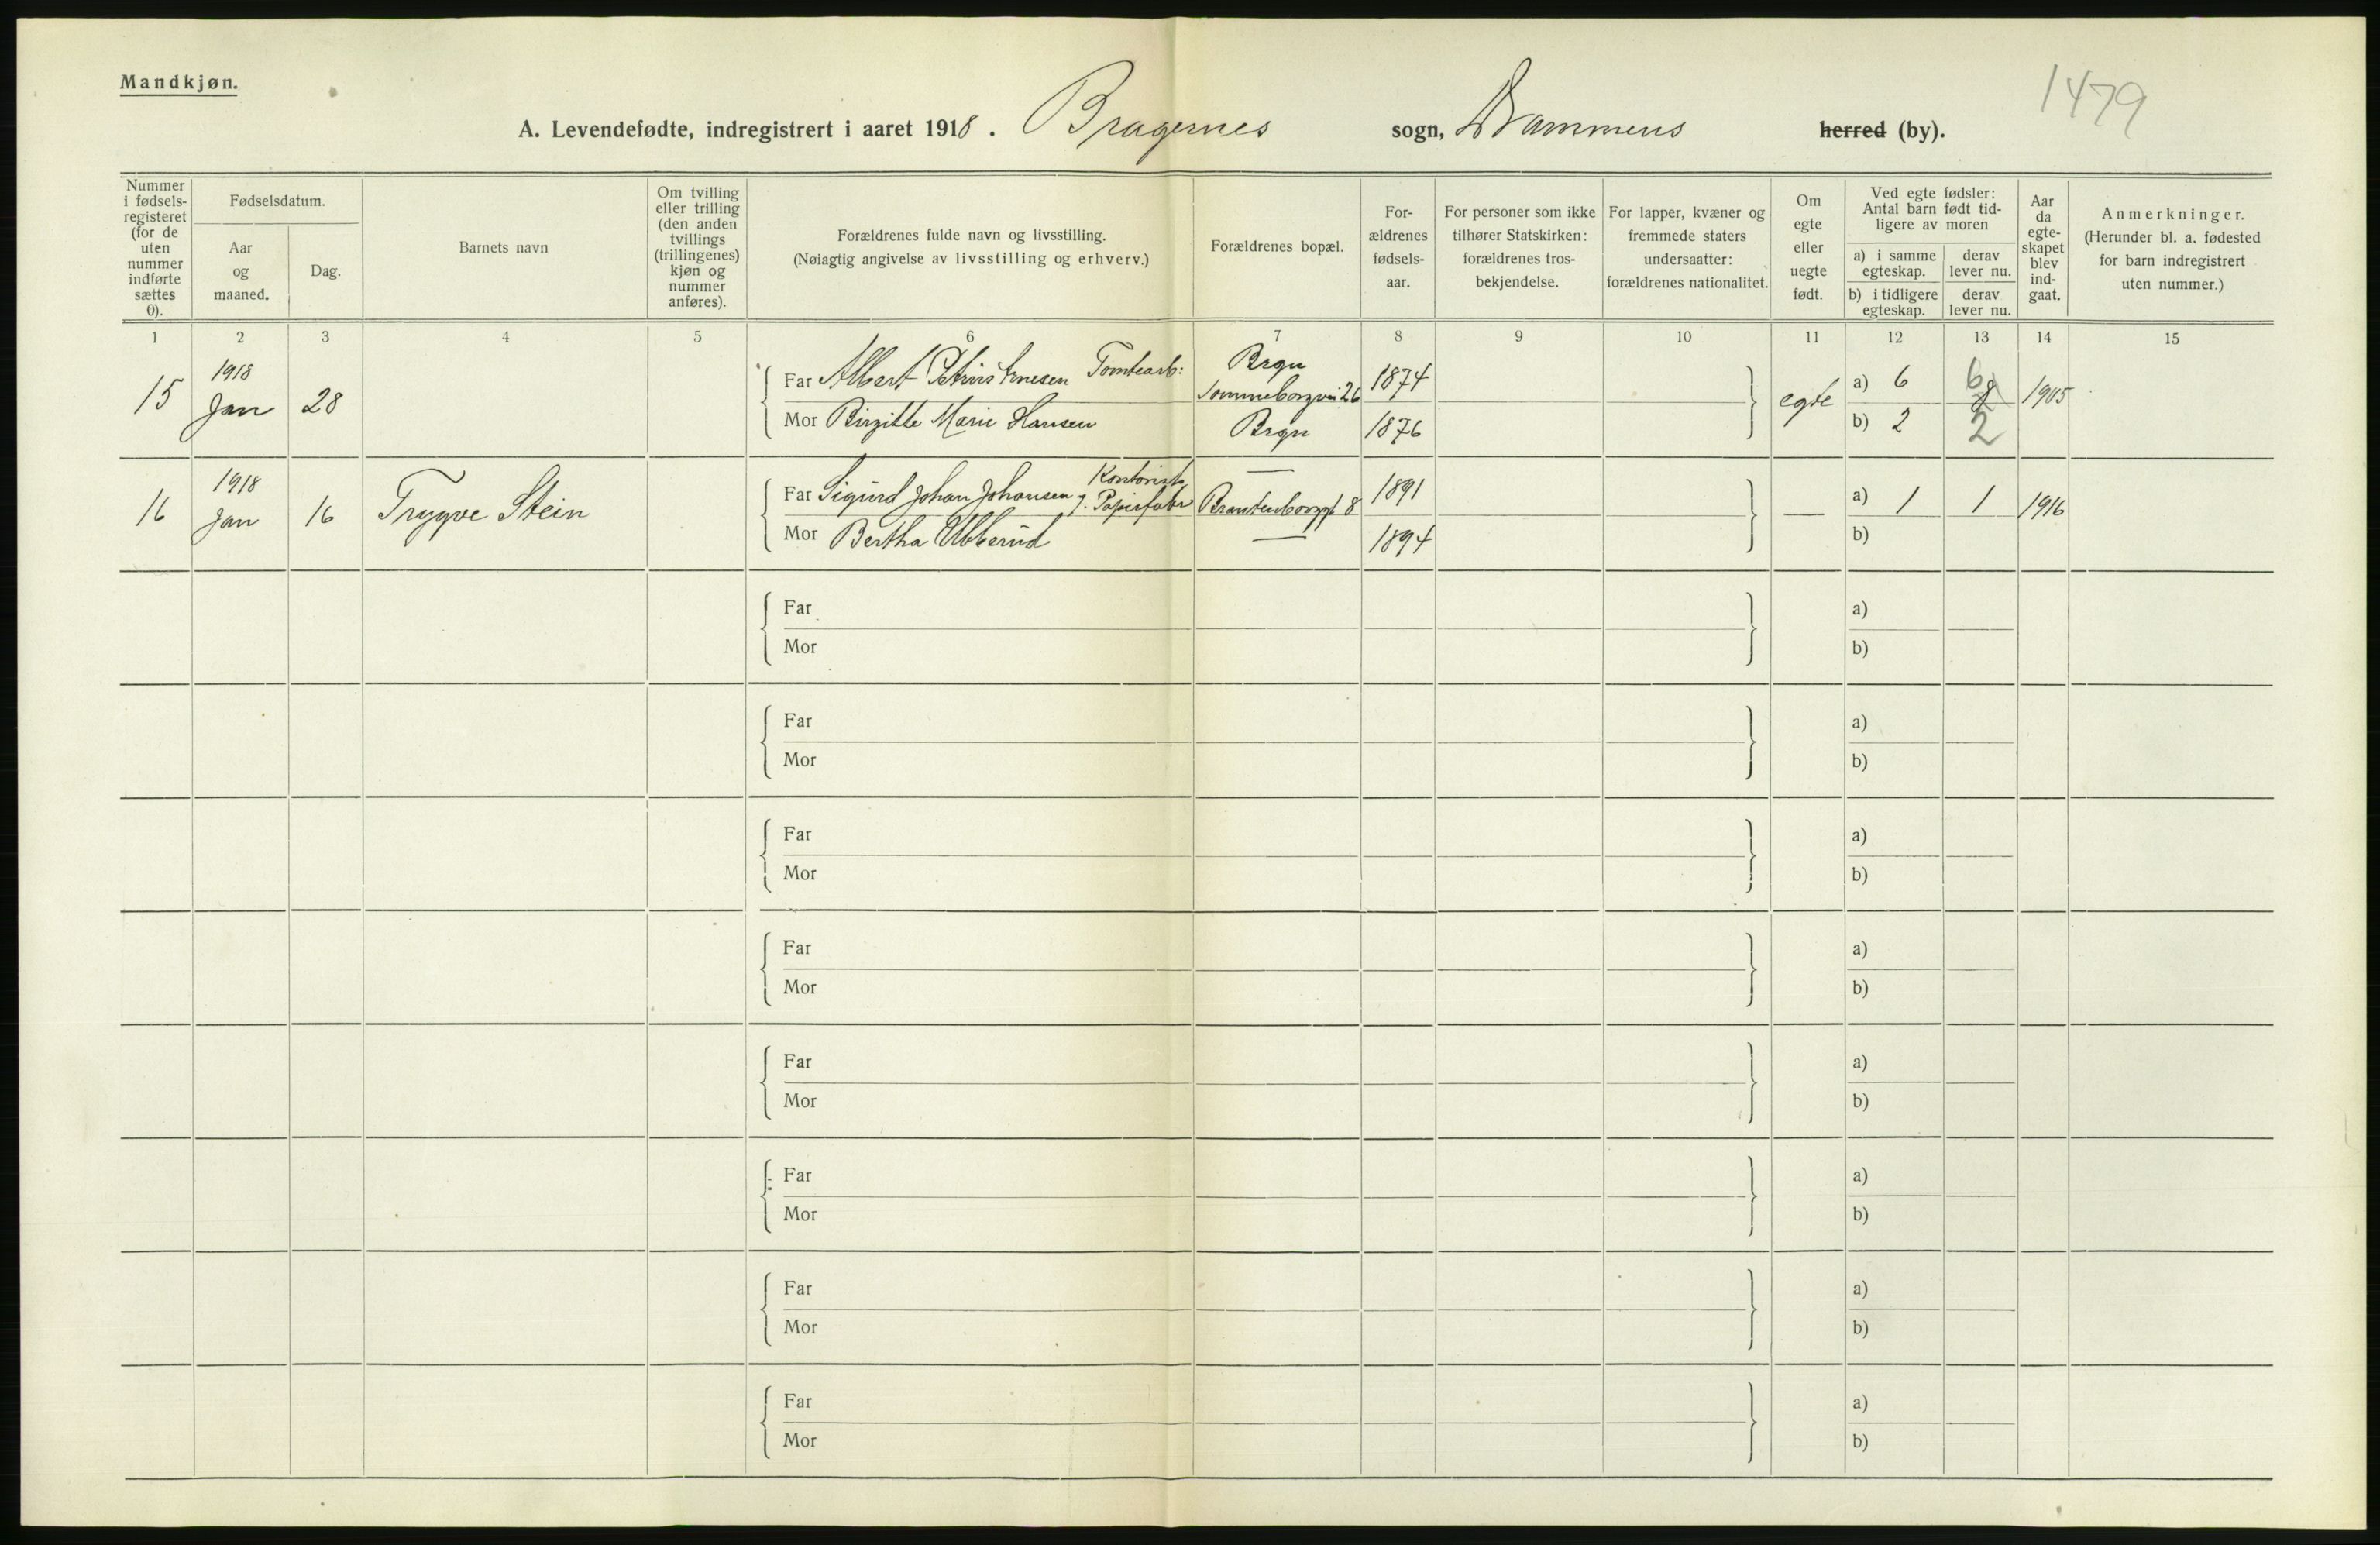 Mandkjøn.
1479
A. Levendefødte, indregistrert i aaret 1918. Bragernes sogn, Drammens herred (by).
Nummer i fødsels-registeret (for de uten nummer indførte sættes 0).
Fødselsdatum.
Aar og maaned.
Dag.
Barnets navn
Om tvilling eller trilling (den anden tvillings (trillingenes) kjøn og nummer anføres).
Forældrenes fulde navn og livsstilling.
(Nøiagtig angivelse av livsstilling og erhverv.)
Forældrenes bopæl.
For-ældrenes fødsels-aar.
For personer som ikke tilhører Statskirken: forældrenes tros-bekjendelse.
For lapper, kvæner og fremmede staters undersaatter: forældrenes nationalitet.
Om egte eller uegte født.
Ved egte fødsler: Antal barn født tid-ligere av moren
a) i samme egteskap.
derav lever nu.
b) i tidligere egteskap.
derav lever nu.
Aar da egte-skapet blev ind-gaat.
Anmerkninger.
(Herunder bl. a. fødested for barn indregistrert uten nummer.)
1 2 3 4 5 6 7 8 9 10 11 12 13 14 15
15 1918 Jan 28
Far Albert Tomtearb: Brgn 26 1874
Mor Birgitte Marie Hansen Brgn 1876
egte a) 6 6 1905
b) 2 2
16 1918 Jan 16 Trygve Stein
Far Sigurd Johan Johansen Kontorist Papirfabr 8 1891
Mor Bertha Ubberud — 1894
— a) 1 1 1916
b)
Far
Mor
a)
b)
Far
Mor
a)
b)
Far
Mor
a)
b)
Far
Mor
a)
b)
Far
Mor
a)
b)
Far
Mor
a)
b)
Far
Mor
a)
b)
Far
Mor
a)
b)